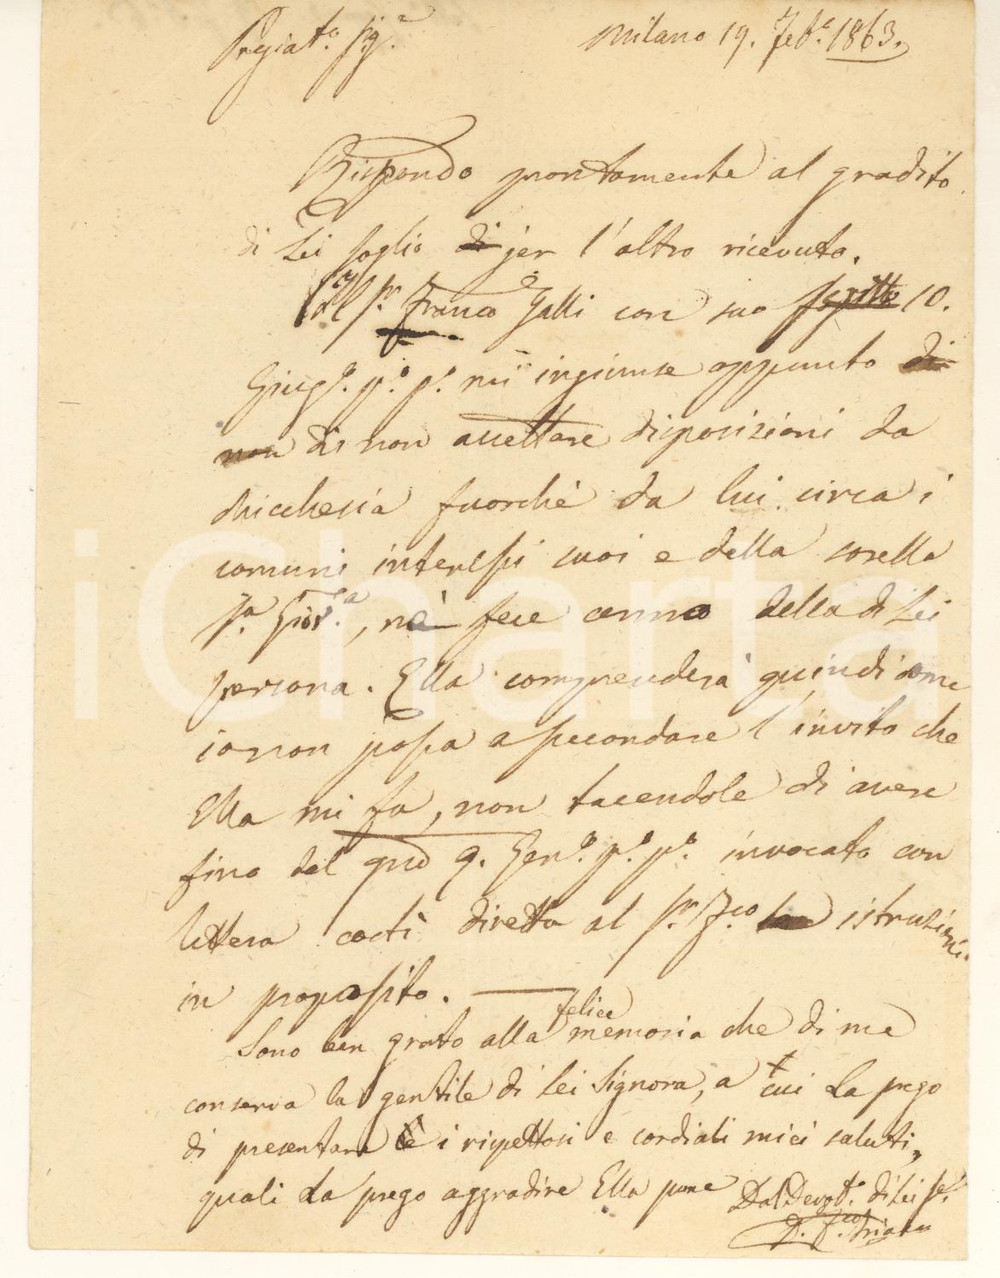 Pregiat.º Sig.r
Milano 19. Feb.º 1863.
Rispondo prontamente al gradito
di Lei foglio di jer l'altro ricevuto.
Il Sr. Franco Galli con suo scritto 10.
Giug.º p.º p.º mi ingiunse appunto di
non di non accettare disposizioni da
chicchesia fuorchè da lui circa i
comuni interessi suoi e della sorella
Sa. Giov.a, nè fece cenno della di Lei
persona. Ella comprenderà quindi come
io non possa assecondare l'invito che
Ella mi fa, non tacendole di avere
fino dal giorno 9. Gen.º p.º p.º invocato con
lettera costì diretta al Sr. F.co istruzioni
in proposito.
felice
Sono ben grato alla memoria che di me
conserva la gentile di Lei Signora, a cui La prego
di presentare i rispettosi e cordiali miei saluti,
quali La prego aggradire Ella pure
Dal Devot.º di Lei Se.
iCharta